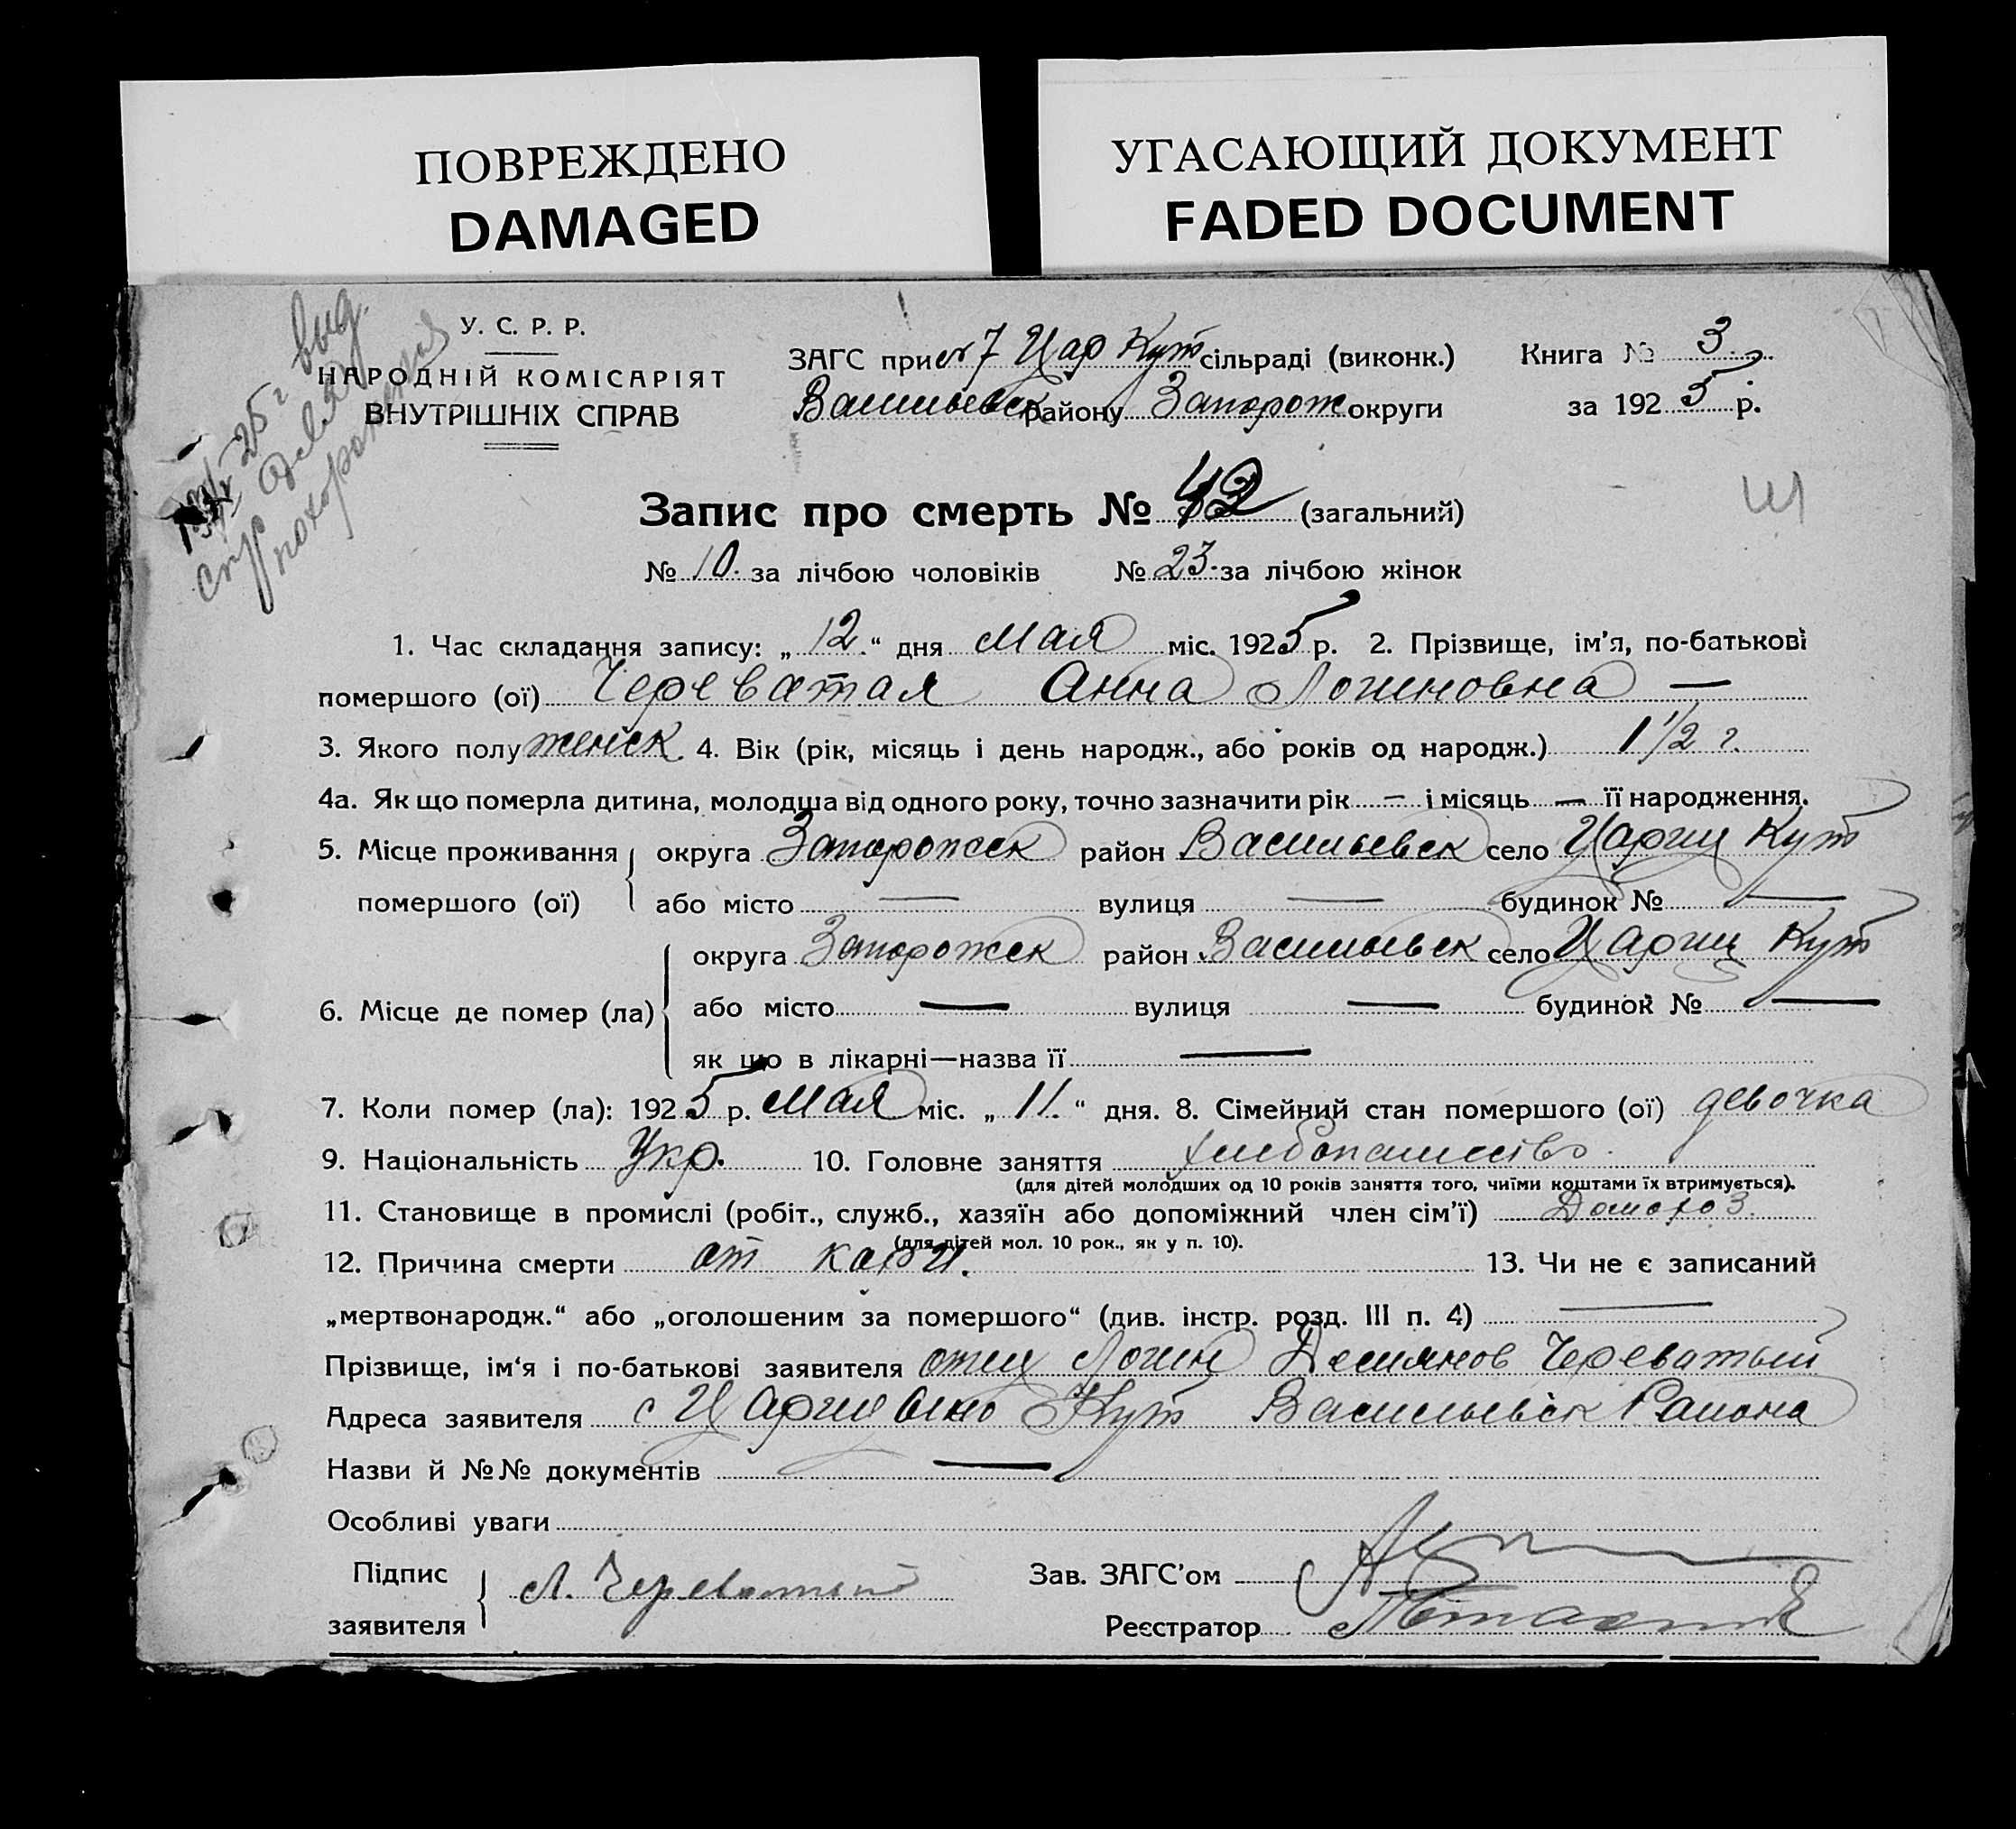 ПОВРЕЖДЕНО
DAMAGED
УГАСАЮЩИЙ ДОКУМЕНТ
FADED DOCUMENT
25 г вид
для
похоронения
У. С. Р. Р.
НАРОДНІЙ КОМІСАРІЯТ
ВНУТРІШНІХ СПРАВ
ЗАГС при № 7 Цар Кут сільраді (виконк.)
Васильевск району Запорож округи
Книга № 3
за 1925 р.
Запис про смерть № 42 (загальний)
№ 10. за лічбою чоловіків № 23. за лічбою жінок
1. Час складання запису: „12.“ дня Мая міс. 1925 р. 2. Прізвище, ім’я, по-батькові
помершого (ої) Череватая Анна Логиновна —
3. Якого полу женск 4. Вік (рік, місяць і день народж., або років од народж.) 1 1/2 г.
4а. Як що померла дитина, молодша від одного року, точно зазначити рік — і місяць — її народження.
5. Місце проживання помершого (ої) округа Запорожск район Васильевск село Цариц Кут
або місто — вулиця — будинок № —
6. Місце де помер (ла) округа Запорожск район Васильевск село Цариц Кут
або місто — вулиця — будинок № —
як що в лікарні—назва її —
7. Коли помер (ла): 1925 р. Мая міс. „11.“ дня. 8. Сімейний стан помершого (ої) девочка
9. Національність Укр. 10. Головне заняття хлебопашество.
(для дітей молодших од 10 років заняття того, чиїми коштами їх втримується).
11. Становище в промислі (робіт., служб., хазяїн або допоміжний член сім’ї) Домохоз.
(для дітей мол. 10 рок., як у п. 10).
12. Причина смерти от кори. 13. Чи не є записаний
„мертвонародж.“ або „оголошеним за помершого“ (див. інстр. розд. III п. 4) —
Прізвище, ім‘я і по-батькові заявителя отец Логин Демянов Череватый
Адреса заявителя с Царицыно Кут Васильевск Района
Назви й №№ документів —
Особливі уваги
Підпис заявителя Л. Череватый
Зав. ЗАГС’ом
Реєстратор